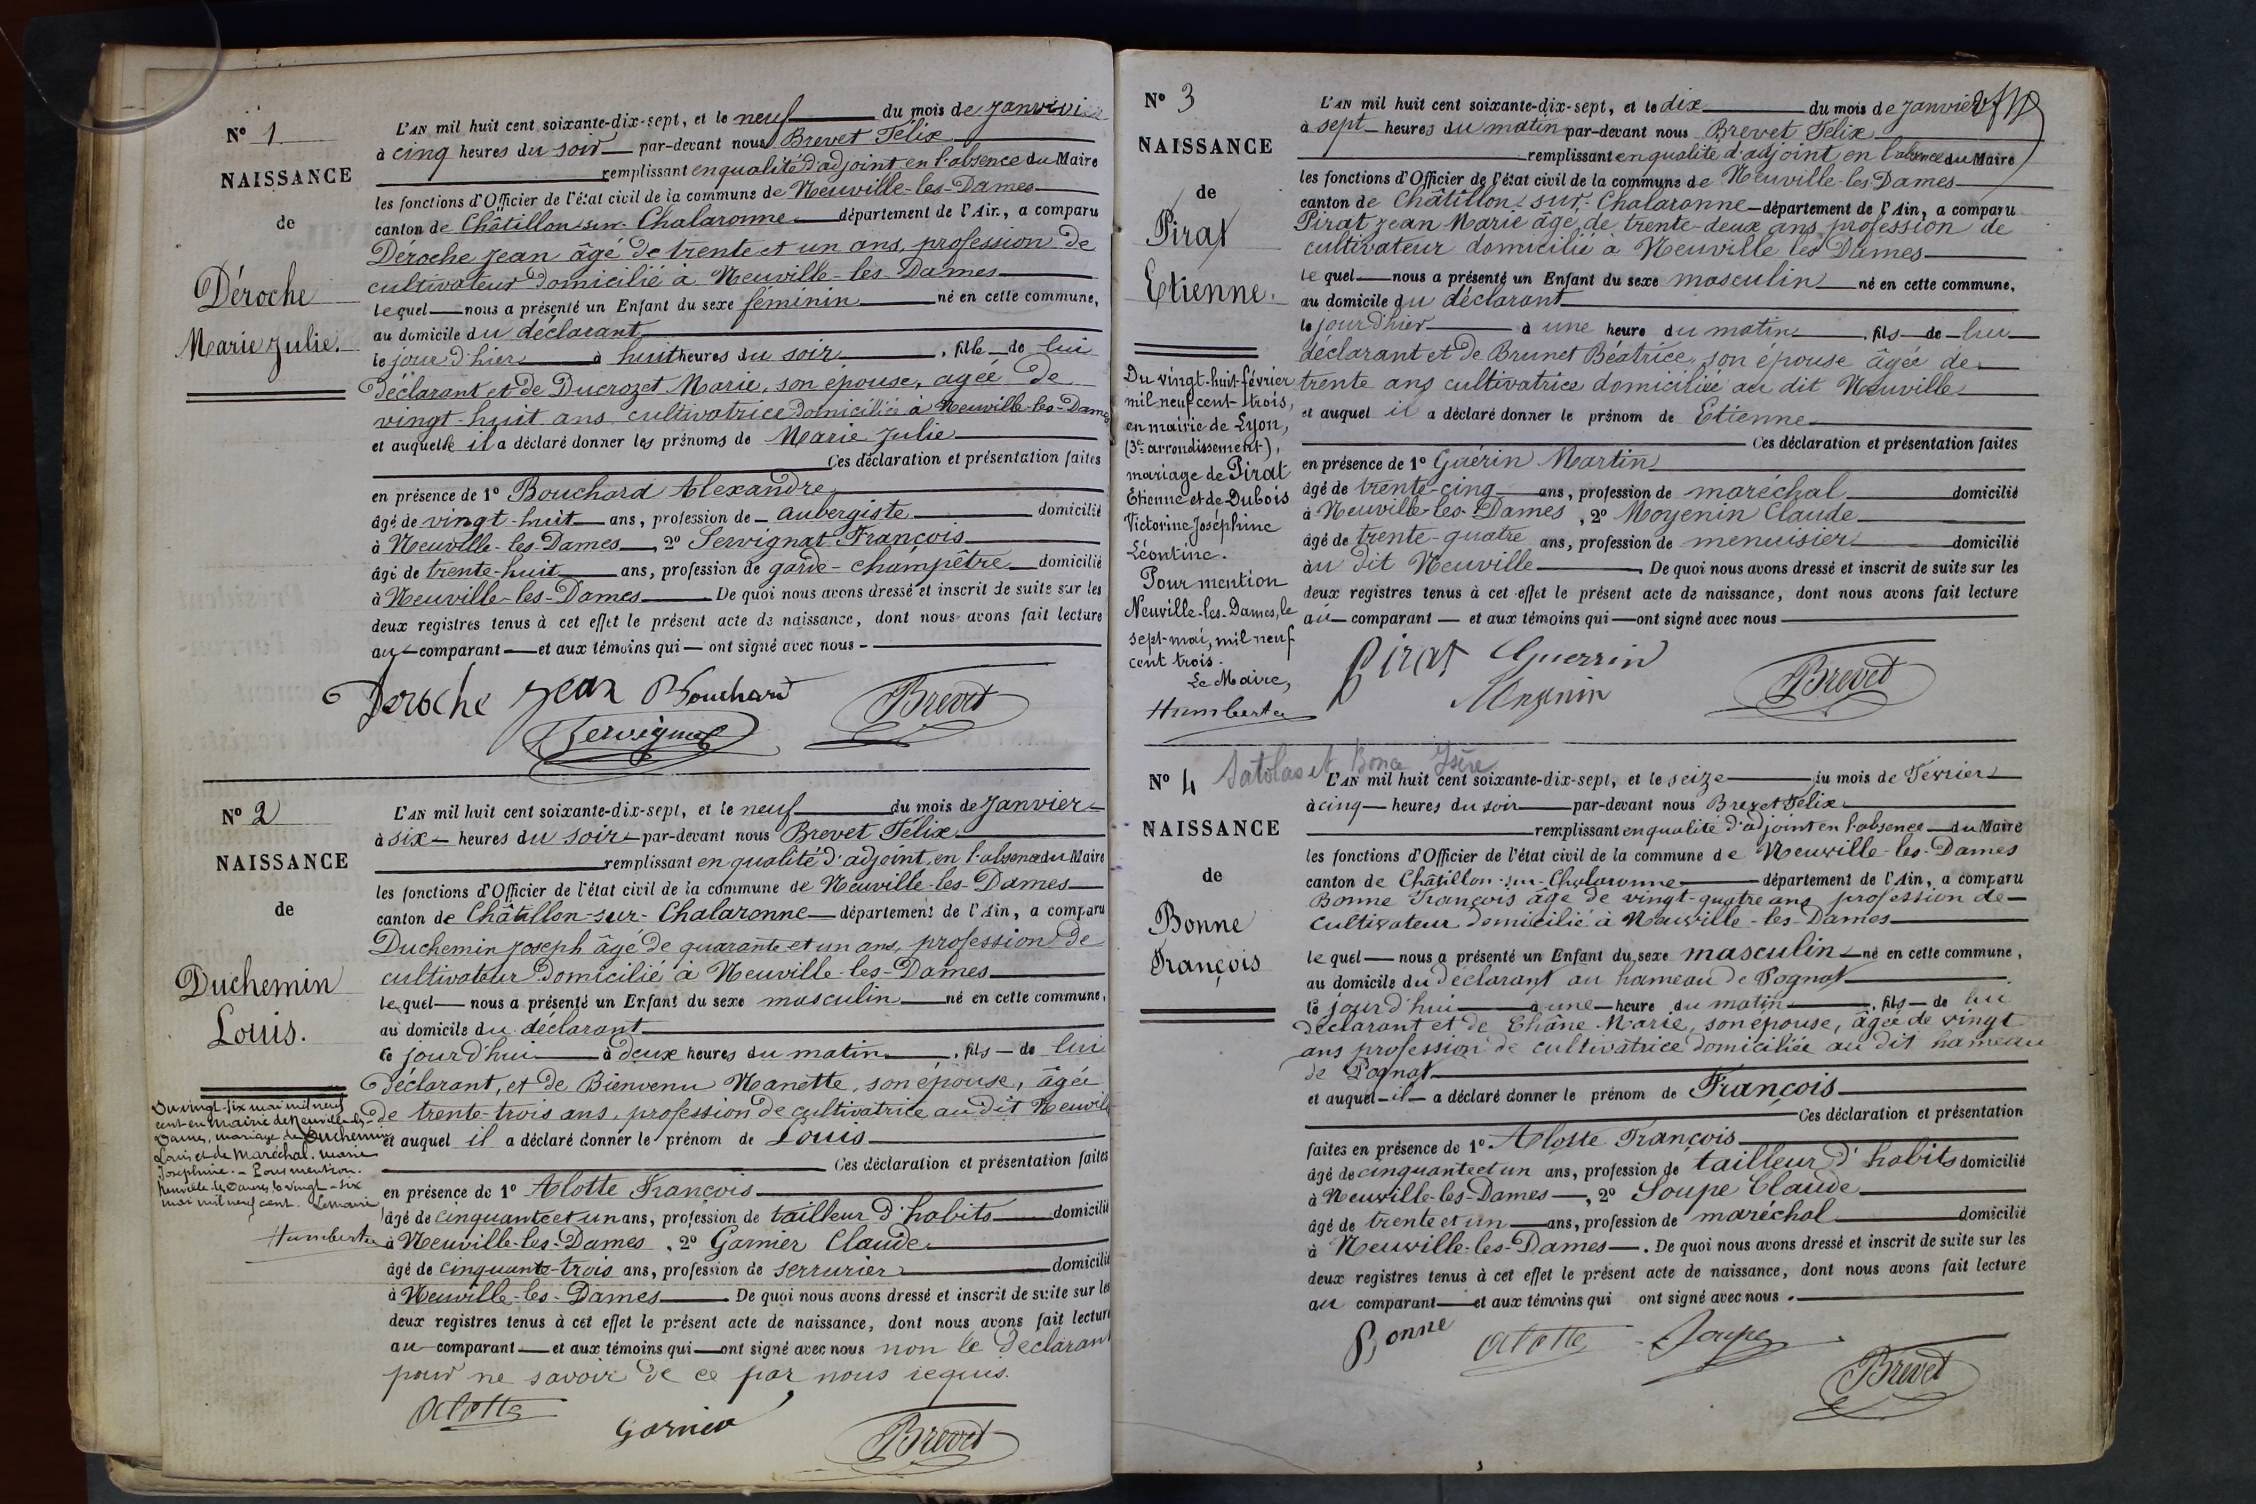 N° 1
NAISSANCE
de
Déroche
Marie Julie.
L'AN mil huit cent soixante-dix-sept, et le neuf du mois de Janvier
à cinq heures du soir par-devant nous Brevet Félix
remplissant en qualité d'adjoint en l'absence du Maire
les fonctions d'Officier de l'état civil de la commune de Neuville-les-Dames
canton de Châtillon-sur-Chalaronne département de l'Ain, a comparu
Déroche Jean âgé de trente et un ans profession de
cultivateur domicilié à Neuville-les-Dames
lequel nous a présenté un Enfant du sexe féminin né en cette commune,
au domicile du déclarant
le jour d'hier à huit heures du soir, fille de lui
déclarant et de Ducrozet Marie, son épouse, agée de
vingt-huit ans cultivatrice domiciliée à Neuville-les-Dames
et auquelle il a déclaré donner les prénoms de Marie Julie
Ces déclaration et présentation faites
en présence de 1° Bouchard Alexandre
âgé de vingt-huit ans, profession de aubergiste domicilié
à Neuville-les-Dames, 2° Servignat François
âgé de trente-huit ans, profession de garde-champêtre domicilié
à Neuville-les-Dames De quoi nous avons dressé et inscrit de suite sur les
deux registres tenus à cet effet le présent acte de naissance, dont nous avons fait lecture
au comparant et aux témoins qui ont signé avec nous
Deroche Jean Bouchard Brevet
Servignat
N° 2
NAISSANCE
de
Duchemin
Louis.
Du vingt-six mai mil neuf
cent en mairie de Neuville-les-
Dames, mariage de Duchemin
Louis et de Maréchal Marie
Joséphine. - Pour mention.
Neuville-les-Dames le vingt-six
mai mil neuf cent. Le maire
Humbert
L'AN mil huit cent soixante-dix-sept, et le neuf du mois de Janvier
à six heures du soir par-devant nous Brevet Félix
remplissant en qualité d'adjoint en l'absence du Maire
les fonctions d'Officier de l'état civil de la commune de Neuville-les-Dames
canton de Châtillon-sur-Chalaronne département de l'Ain, a comparu
Duchemin Joseph âgé de quarante et un ans, profession de
cultivateur domicilié à Neuville-les-Dames
lequel nous a présenté un Enfant du sexe masculin né en cette commune,
au domicile du déclarant
ce jourd'hui à deux heures du matin, fils de lui
déclarant, et de Bienvenu Nanette, son épouse, âgée
de trente-trois ans, profession de cultivatrice au dit Neuville
et auquel il a déclaré donner le prénom de Louis
Ces déclaration et présentation faites
en présence de 1° Alotte François
âgé de cinquante et un ans, profession de tailleur d'habits domicilié
à Neuville-les-Dames, 2° Garnier Claude
âgé de cinquante-trois ans, profession de serrurier domicilié
à Neuville-les-Dames De quoi nous avons dressé et inscrit de suite sur les
deux registres tenus à cet effet le présent acte de naissance, dont nous avons fait lecture
au comparant et aux témoins qui ont signé avec nous non le déclarant
pour ne savoir de ce par nous requis.
Alotte
Garnier
Brevet
N° 3
NAISSANCE
de
Pirat
Etienne.
Du vingt-huit février
mil neuf cent trois,
en mairie de Lyon,
(3e arrondissement),
mariage de Pirat
Etienne et de Dubois
Victorine Joséphine
Léontine.
Pour mention
Neuville-les-Dames, le
sept mai, mil neuf
cent trois.
Le Maire,
Humbert
L'AN mil huit cent soixante-dix-sept, et le dix du mois de Janvier
à sept heures du matin par-devant nous Brevet Félix
remplissant en qualité d'adjoint en l'absence du Maire
les fonctions d'Officier de l'état civil de la commune de Neuville-les-Dames
canton de Châtillon-sur-Chalaronne département de l'Ain, a comparu
Pirat Jean Marie âgé de trente-deux ans profession de
cultivateur domicilié à Neuville les Dames
lequel nous a présenté un Enfant du sexe masculin né en cette commune,
au domicile du déclarant
le jour d'hier à une heure du matin, fils de lui
déclarant et de Brunet Béatrice, son épouse âgée de
trente ans cultivatrice domiciliée au dit Neuville
et auquel il a déclaré donner le prénom de Etienne
Ces déclaration et présentation faites
en présence de 1° Guérin Martin
âgé de trente-cinq ans, profession de maréchal domicilié
à Neuville-les-Dames, 2° Moyenin Claude
âgé de trente-quatre ans, profession de menuisier domicilié
au dit Neuville. De quoi nous avons dressé et inscrit de suite sur les
deux registres tenus à cet effet le présent acte de naissance, dont nous avons fait lecture
au comparant et aux témoins qui ont signé avec nous
Pirat Guerrin
Brevet
N° 4
Satolas et Bonce Isère
NAISSANCE
de
Bonne
François
L'AN mil huit cent soixante-dix-sept, et le seize du mois de Février
à cinq heures du soir par-devant nous Brevet Félix
remplissant en qualité d'adjoint en l'absence du Maire
les fonctions d'Officier de l'état civil de la commune de Neuville-les-Dames
canton de Châtillon-sur-Chalaronne département de l'Ain, a comparu
Bonne François âgé de vingt-quatre ans profession de
cultivateur domicilié à Neuville-les-Dames
lequel nous a présenté un Enfant du sexe masculin né en cette commune,
au domicile du déclarant au hameau de Pognat
ce jourd'hui à une heure du matin, fils de lui
déclarant et de Châne Marie, son épouse, âgée de vingt
ans profession de cultivatrice domiciliée au dit hameau
de Pognat
et auquel il a déclaré donner le prénom de François
Ces déclaration et présentation
faites en présence de 1° Alotte François
âgé de cinquante et un ans, profession de tailleur d'habits domicilié
à Neuville-les-Dames, 2° Soupe Claude
âgé de trente et un ans, profession de maréchal domicilié
à Neuville-les-Dames. De quoi nous avons dressé et inscrit de suite sur les
deux registres tenus à cet effet le présent acte de naissance, dont nous avons fait lecture
au comparant et aux témoins qui ont signé avec nous.
Bonne Alotte Soupe
Brevet